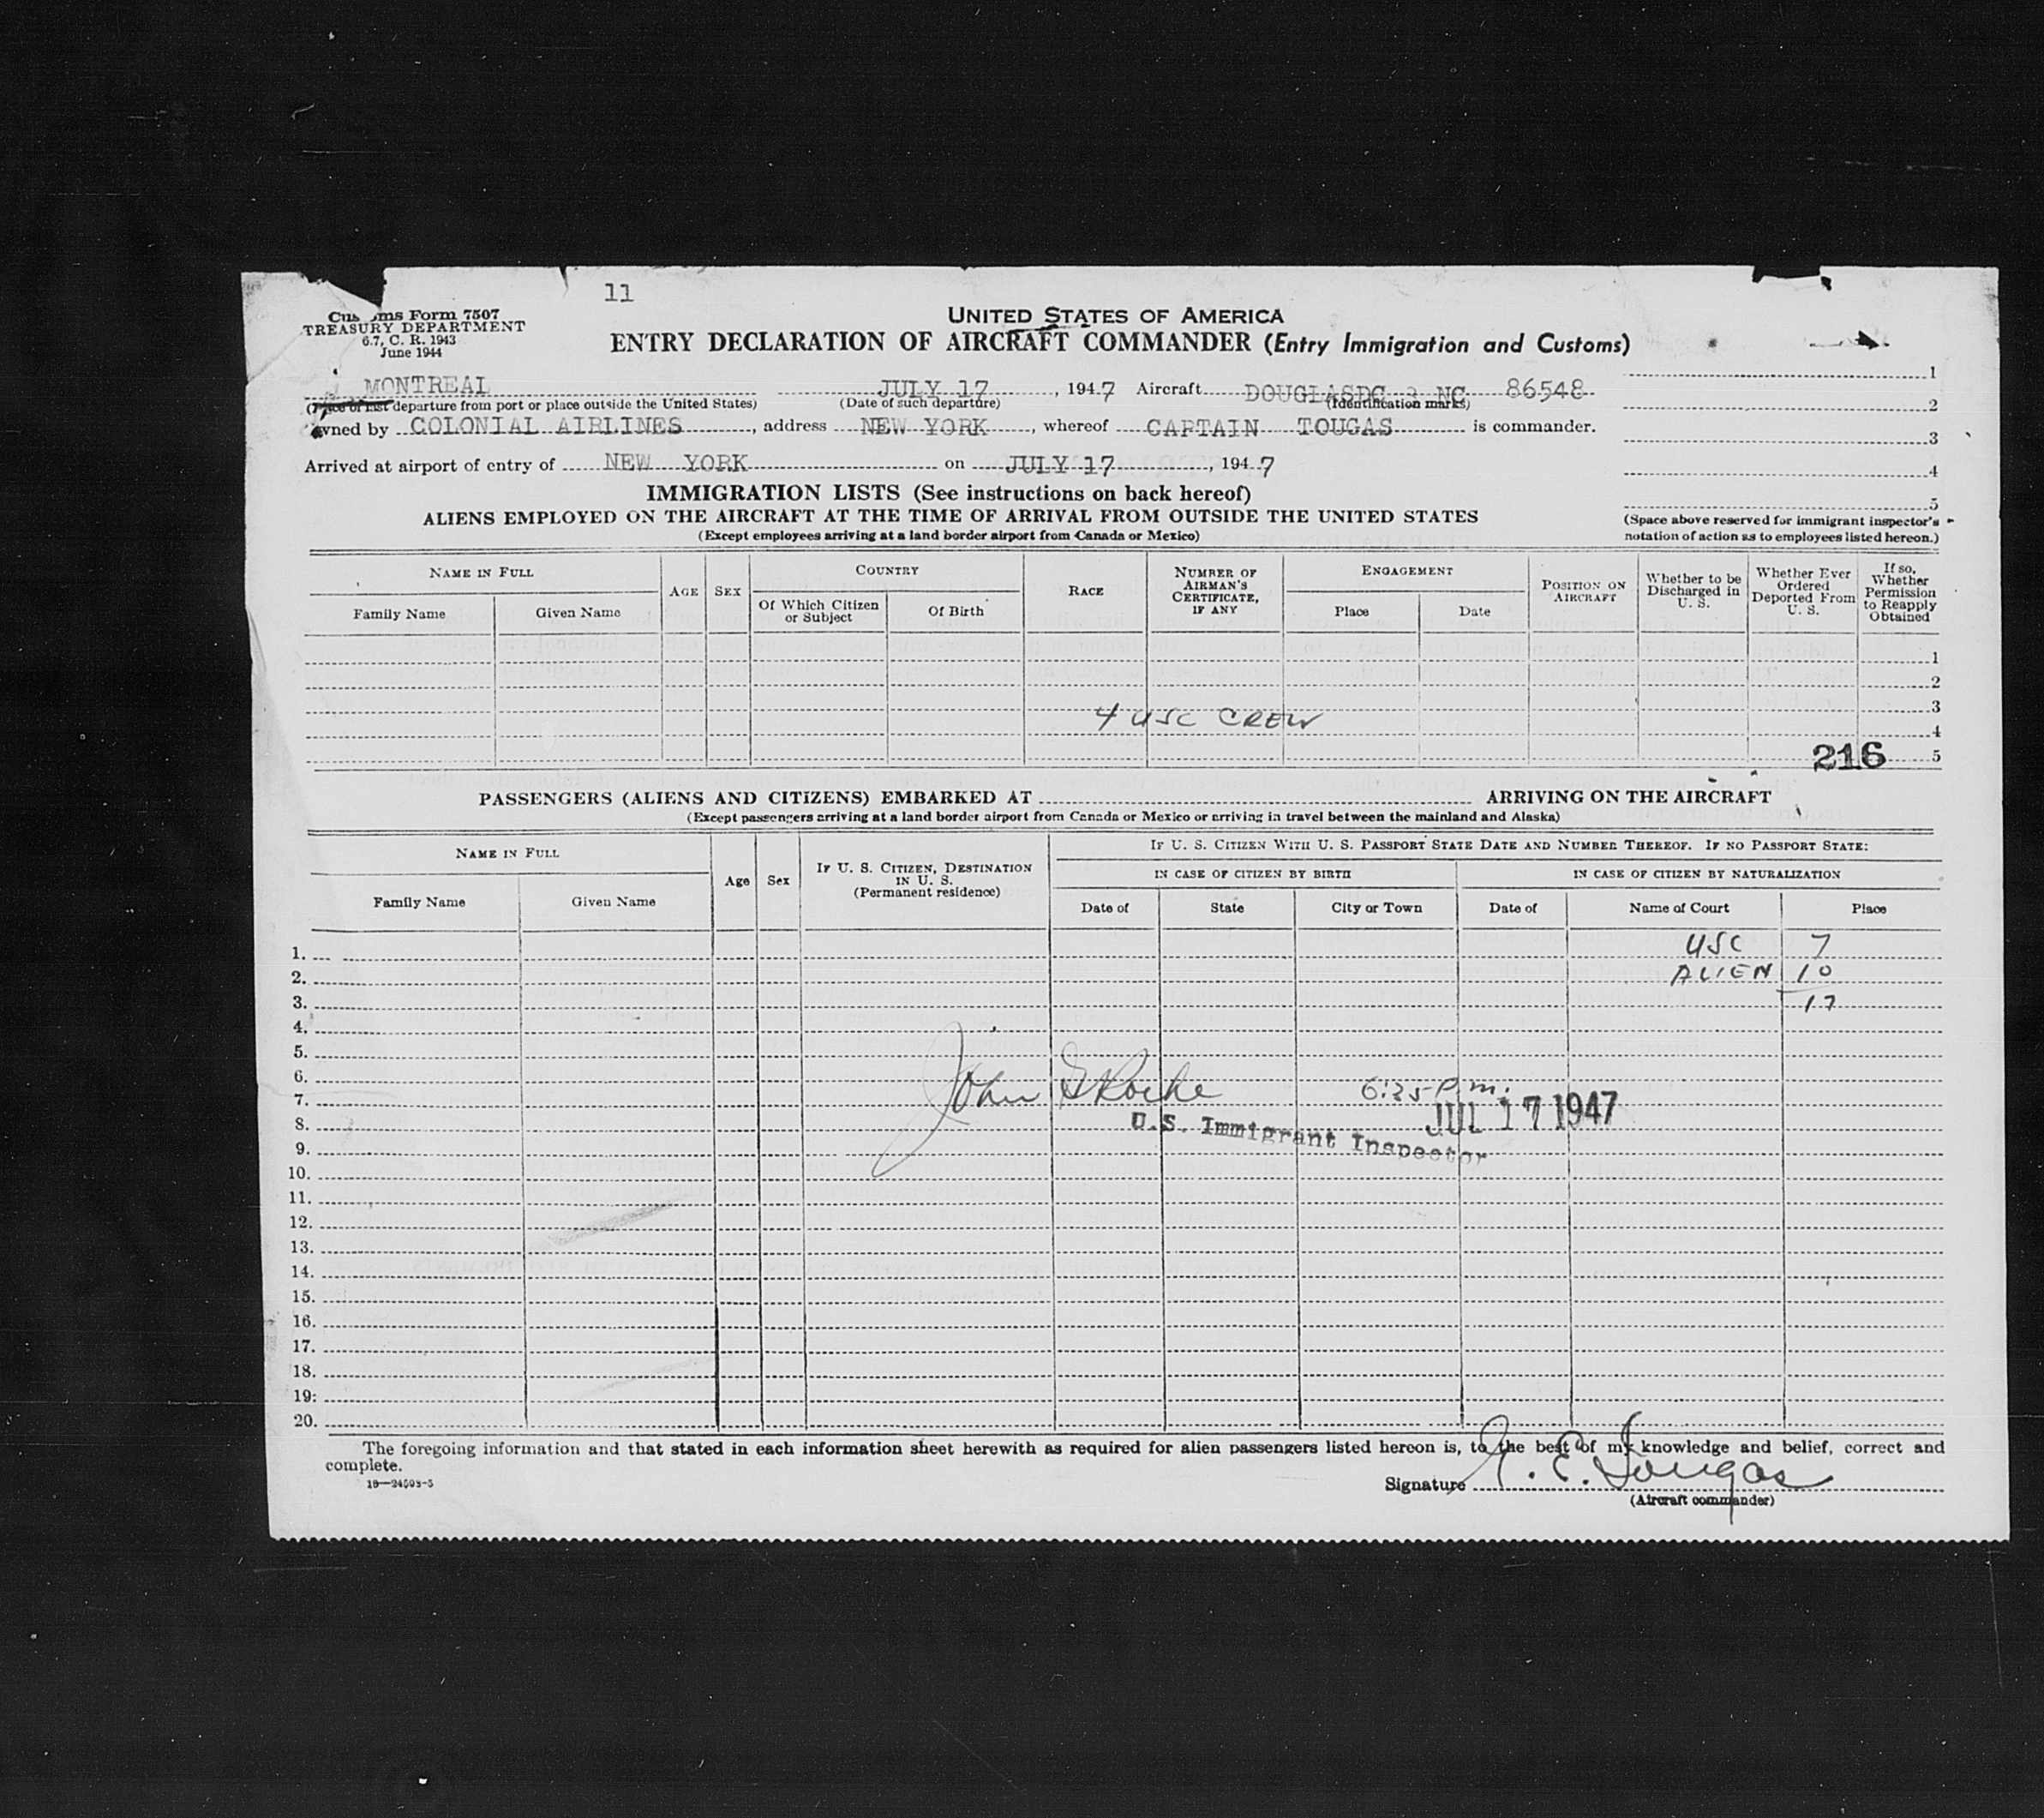 11
Customs Form 7507
TREASURY DEPARTMENT
6.7, C. R. 1943
June 1944
UNITED STATES OF AMERICA
ENTRY DECLARATION OF AIRCRAFT COMMANDER (Entry Immigration and Customs)
MONTREAL JULY 17, 1947 Aircraft DOUGLASDC 3 NC 86548
(Place of last departure from port or place outside the United States) (Date of such departure) (Identification marks)
owned by COLONIAL AIRLINES, address NEW YORK, whereof CAPTAIN TOUGAS is commander.
Arrived at airport of entry of NEW YORK on JULY 17, 1947
1
2
3
4
5
(Space above reserved for immigrant inspector's
notation of action as to employees listed hereon.)
IMMIGRATION LISTS (See instructions on back hereof)
ALIENS EMPLOYED ON THE AIRCRAFT AT THE TIME OF ARRIVAL FROM OUTSIDE THE UNITED STATES
(Except employees arriving at a land border airport from Canada or Mexico)
NAME IN FULL
Family Name
Given Name
AGE
SEX
COUNTRY
Of Which Citizen or Subject
Of Birth
RACE
NUMBER OF AIRMAN'S CERTIFICATE, IF ANY
ENGAGEMENT
Place
Date
POSITION ON AIRCRAFT
Whether to be Discharged in U. S.
Whether Ever Ordered Deported From U. S.
If so, Whether Permission to Reapply Obtained
1
2
3
4 USC CREW
4
216
5
PASSENGERS (ALIENS AND CITIZENS) EMBARKED AT ARRIVING ON THE AIRCRAFT
(Except passengers arriving at a land border airport from Canada or Mexico or arriving in travel between the mainland and Alaska)
NAME IN FULL
Family Name
Given Name
Age
Sex
IF U. S. CITIZEN, DESTINATION IN U. S.
(Permanent residence)
IF U. S. CITIZEN WITH U. S. PASSPORT STATE DATE AND NUMBER THEREOF. IF NO PASSPORT STATE:
IN CASE OF CITIZEN BY BIRTH
IN CASE OF CITIZEN BY NATURALIZATION
Date of
State
City or Town
Date of
Name of Court
Place
1. USC 7
2. ALIEN 10
3. 17
4.
5.
6.
7. John Roche 6:35 P.m.
8. U.S. Immigrant Inspector JUL 17 1947
9.
10.
11.
12.
13.
14.
15.
16.
17.
18.
19.
20.
The foregoing information and that stated in each information sheet herewith as required for alien passengers listed hereon is, to the best of my knowledge and belief, correct and
complete.
Signature E. Tougas
(Aircraft commander)